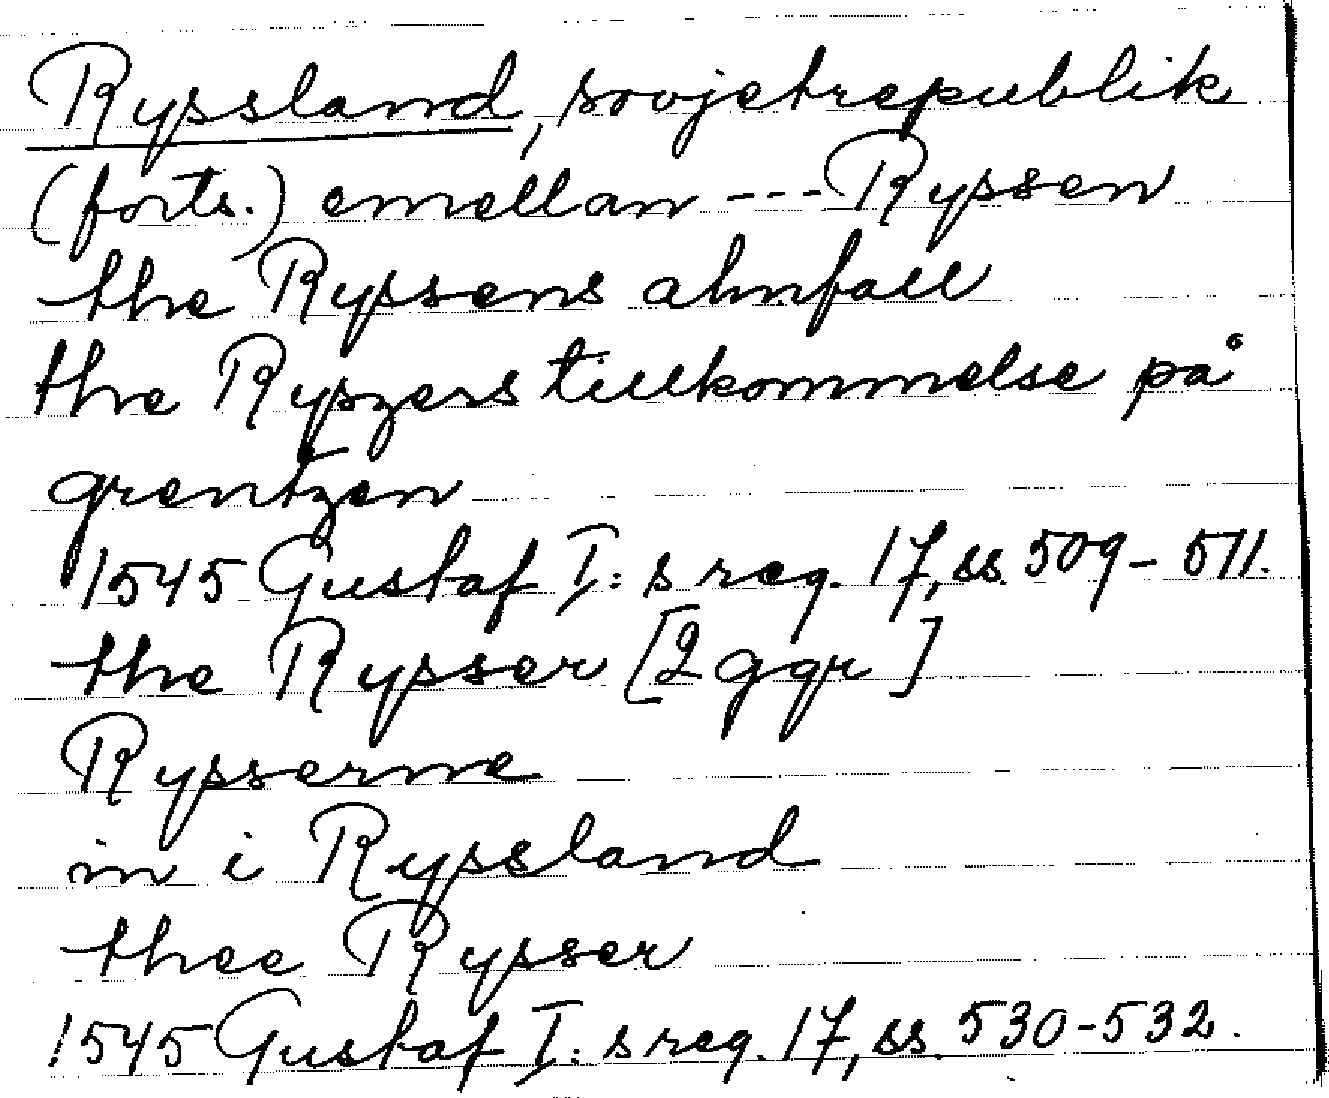 Ryssland, sovjetrepublik
(forts.) emellan --- Ryssen
the Ryssens ahnfall
the Ryszers tillkommelse på
grentzen
1545 Gustaf I:s reg. 17, ss. 509-511.
the Rysser [2 ggr]
Rysserne
in i Ryssland
thee Rysser
1545 Gustaf I:s reg. 17, ss. 530-532.